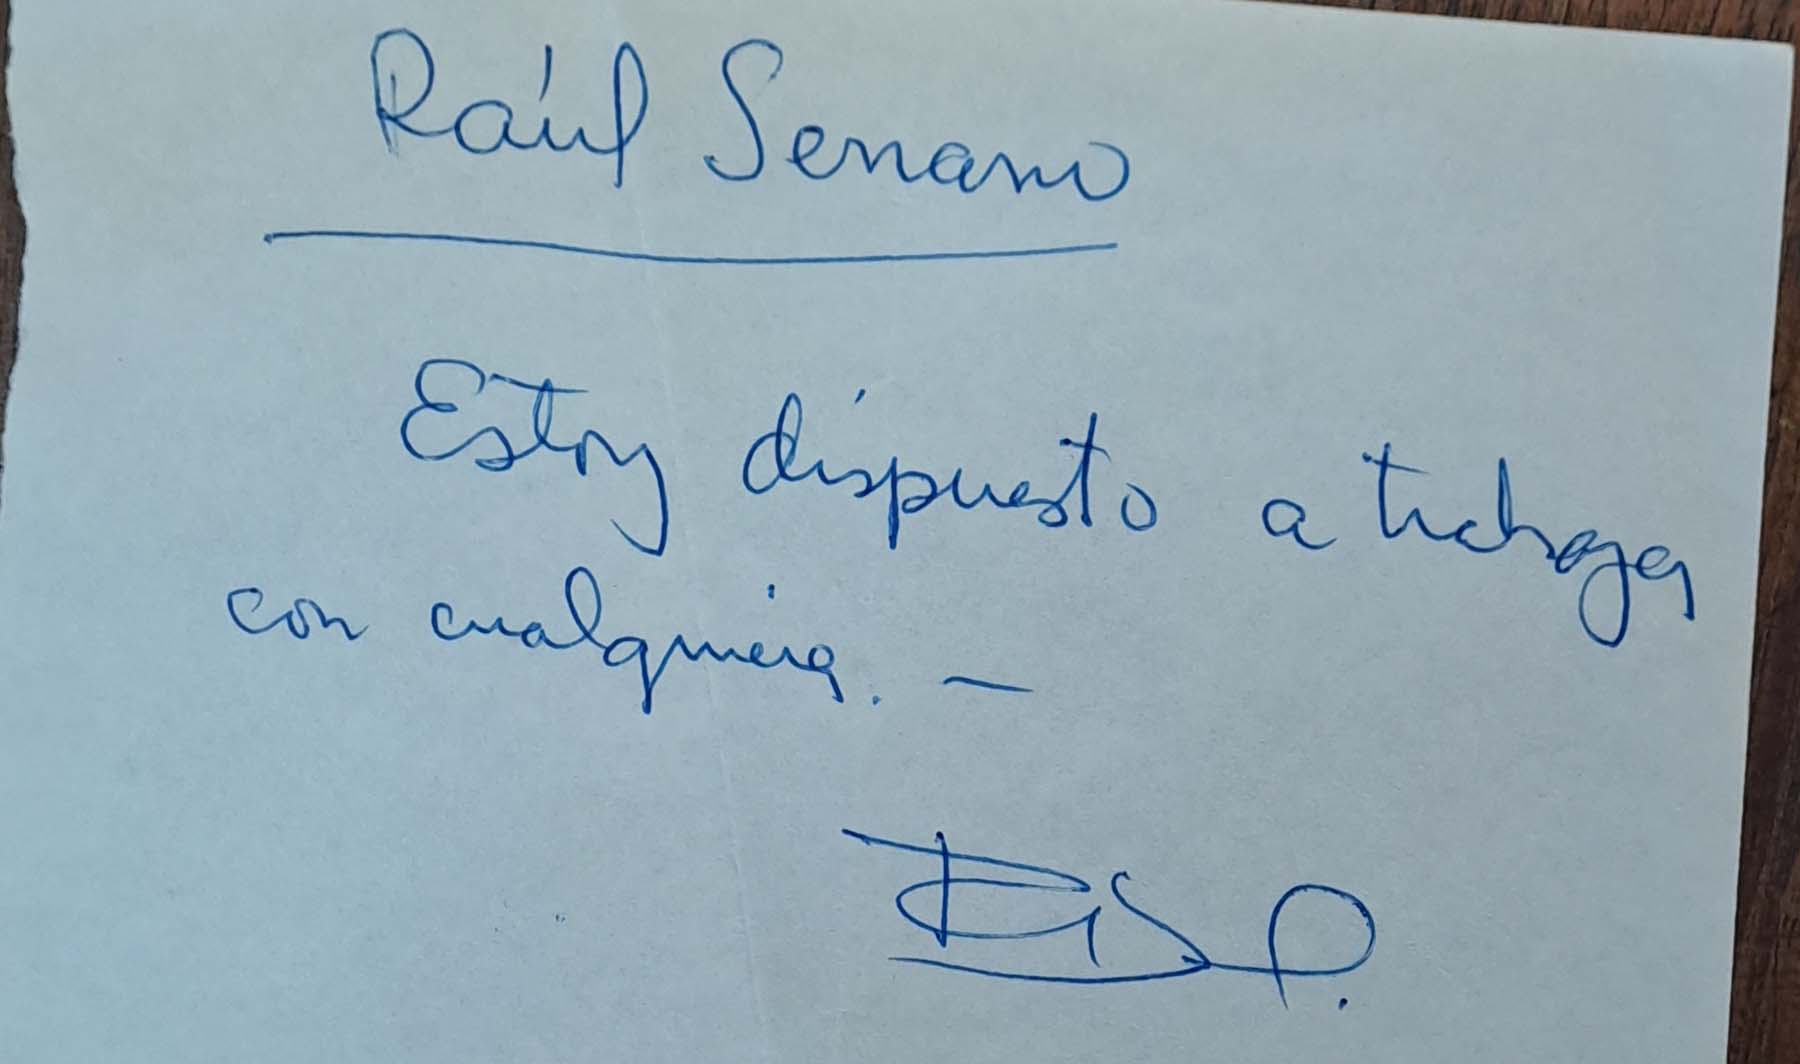 Raúl Serrano
Estoy dispuesto a trabajar
con cualquiera. —